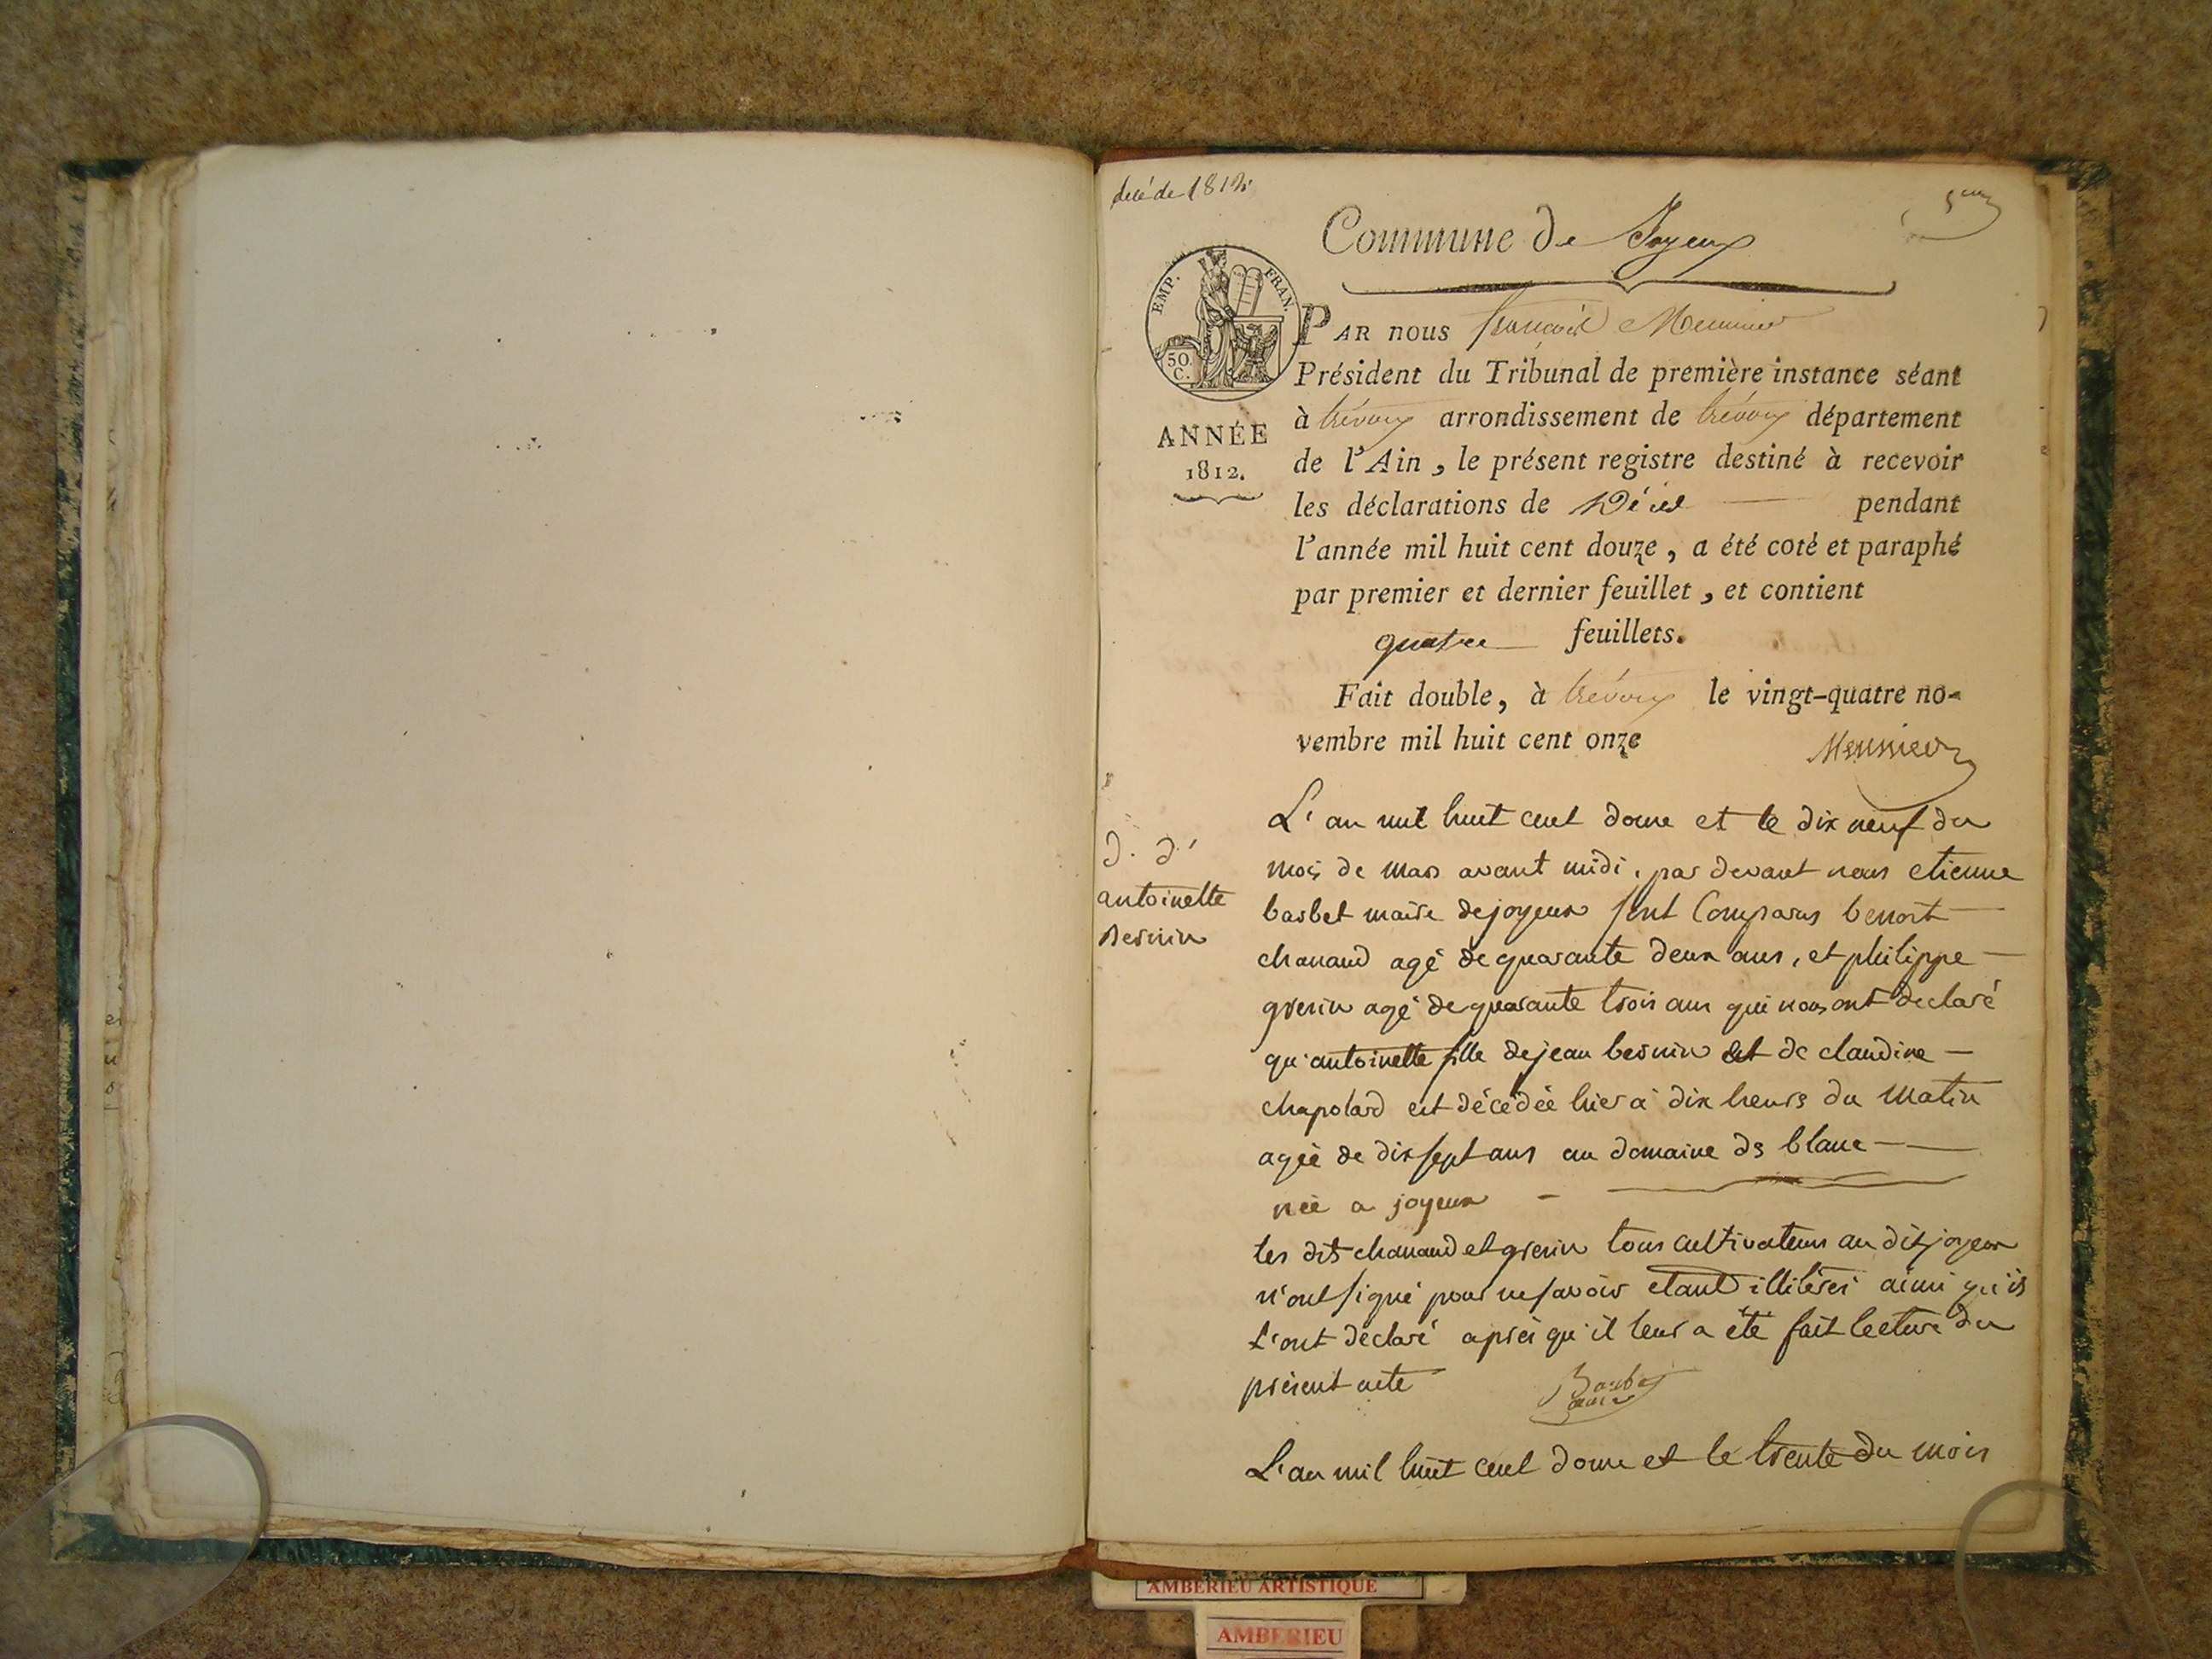 décé de 1812
5
Commune de Joyeux
EMP. FRAN.
50.
C.
ANNÉE
1812.
PAR nous françois Meunier
Président du Tribunal de première instance séant
à trévoux arrondissement de trévoux département
de l'Ain, le présent registre destiné à recevoir
les déclarations de Décès pendant
l'année mil huit cent douze, a été coté et paraphé
par premier et dernier feuillet, et contient
quatre feuillets.
Fait double, à trévoux le vingt-quatre no-
vembre mil huit cent onze
Meunier
D. d'
antoinette
Bernin
L'an mil huit cent douze et le dix neuf du
mois de mars avant midi, par devant nous etienne
barbet maire de joyeux sont Comparus benoit
chanaud agé de quarante deux ans, et philippe
grenin agé de quarante trois ans qui nous ont declaré
qu'antoinette fille de jean bernin et de claudine
chapolard est décédée hier à dix heurs du matin
agée de dix sept ans au domaine ds blanc
née a joyeux
les dits chanaud et grenin tous cultivateurs au dit joyeux
n'ont signé pour ne savoir etant illiterés ainsi qu'is
l'ont déclaré après qu'il leur a été fait lecture du
présent acte
Barbet
maire
L'an mil huit cent douze et le trente du mois
AMBERIEU ARTISTIQUE
AMBERIEU